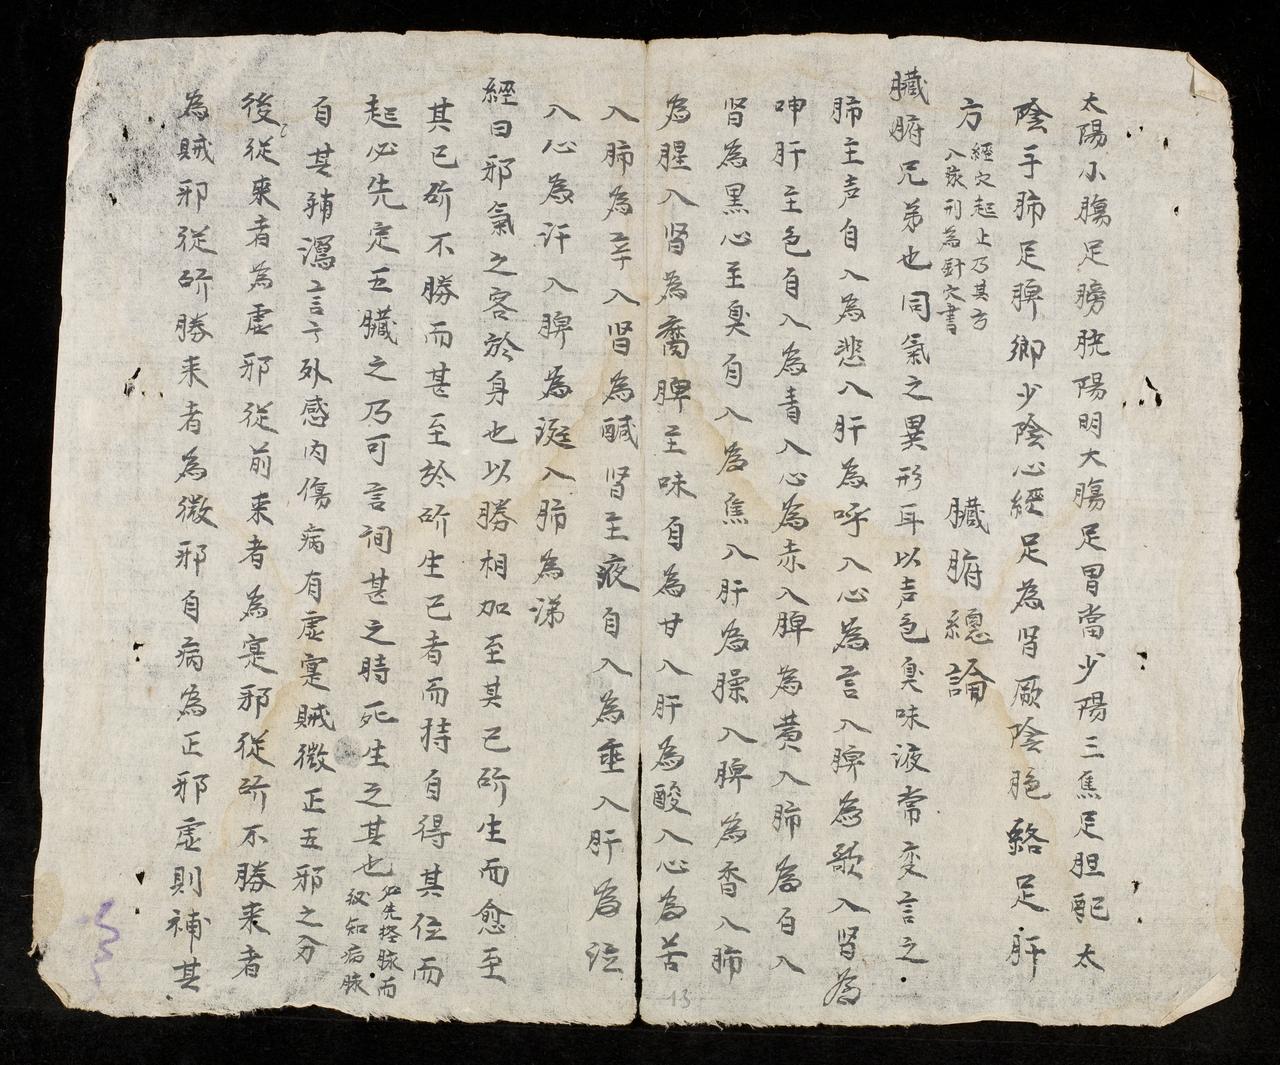 太陽小膓足膀胱陽明大膓足胃當少陽三焦足胆配太
陰手肺足脾鄉少陰心經足為肾厥陰胞絡足肝
方經穴起止乃其方入孩刊為針穴書
臟腑總論
臟腑兄弟也同氣之異形耳以声色臭味液常变言之
肺主声自入為悲入肝為呼入心為言入脾為歌入肾為
呻肝主色自入為青入心為赤入脾為黄入肺為白入
肾為黑心主臭自入為焦入肝為臊入脾為香入肺
為腥入肾為腐脾主味自為甘入肝為酸入心為苦
入肺為辛入肾為醎肾主液自入為垂入肝為泣
入心為汗入脾為涎入肺為涕
經曰邪氣之客於身也以勝相加至其已所生而愈至
其已所不勝而甚至於所生已者而持自得其位而
起必先定五臟之乃可言间甚之時死生之其也必先拯脉而後知病脉
自其補瀉言之外感内傷病有虚寔贼微正五邪之分
後從来者為虚邪從前来者為寔邪從所不勝来者
為贼邪從所勝来者為微邪自病為正邪虚則補其
13